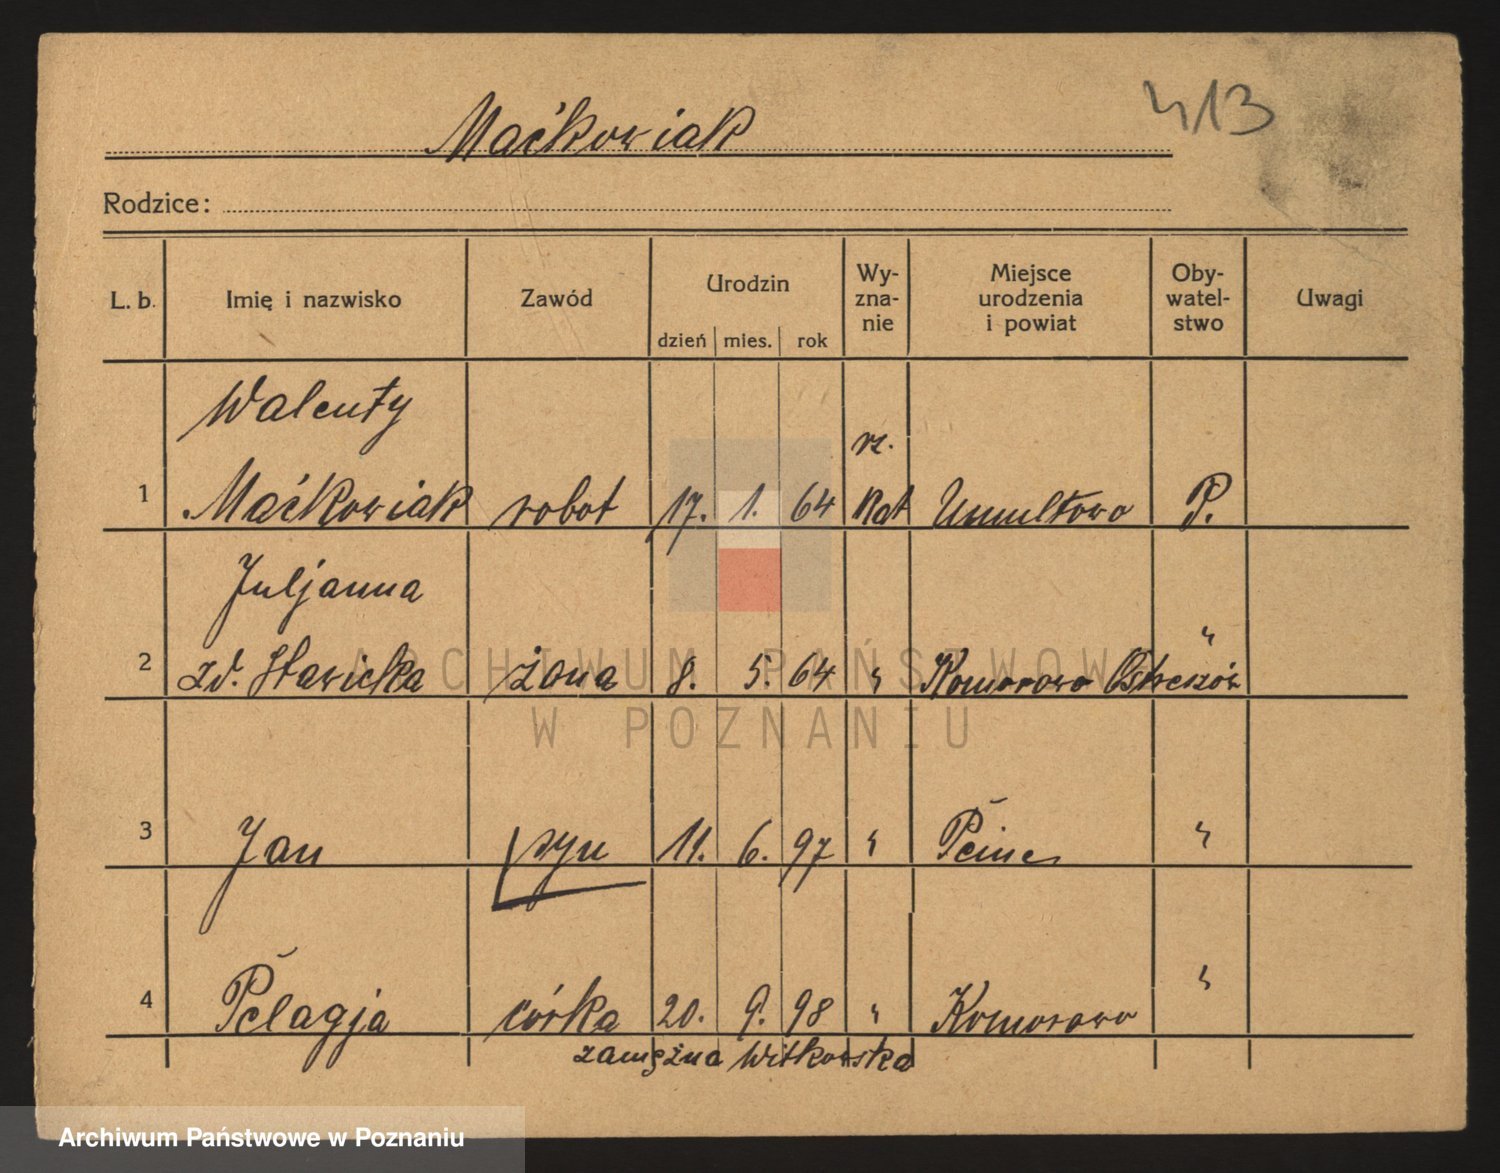 413
Maćkowiak
Rodzice:
L. b. Imię i nazwisko Zawód Urodzin dzień mies. rok Wy-zna-nie Miejsce urodzenia i powiat Oby-watel-stwo Uwagi
Walenty
rz.
1 Maćkowiak robot 17. 1. 64 Kat Umultowo P.
Juljanna
2 zd. Stawicka żona 8. 5. 64 " Komorowo Ostrzeszów "
3 Jan syn 11. 6. 97 " Peine "
4 Pelagja córka 20. 9. 98 " Komorowo "
zamężna Witkowska
ARCHIWUM PAŃSTWOW
W POZNANIU
Archiwum Państwowe w Poznaniu